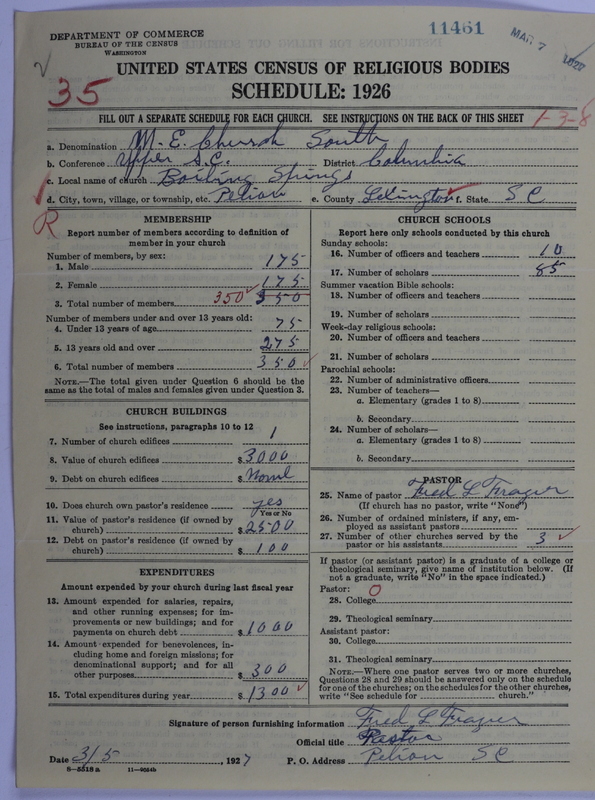 DEPARTMENT OF COMMERCE
BUREAU OF THE CENSUS
WASHINGTON
11461
MAR 7 1927
35
UNITED STATES CENSUS OF RELIGIOUS BODIES
SCHEDULE: 1926
FILL OUT A SEPARATE SCHEDULE FOR EACH CHURCH. SEE INSTRUCTIONS ON THE BACK OF THIS SHEET
1-3-8
a. Denomination M. E. Church South
b. Conference Upper S.C. District Columbia
c. Local name of church Boiling Springs
d. City, town, village, or township, etc. Pelion e. County Lexington f. State S C
R
MEMBERSHIP
Report number of members according to definition of
member in your church
Number of members, by sex:
1. Male 175
2. Female 175
3. Total number of members 350 350
Number of members under and over 13 years old:
4. Under 13 years of age 75
5. 13 years old and over 275
6. Total number of members 350
NOTE.—The total given under Question 6 should be the
same as the total of males and females given under Question 3.
CHURCH BUILDINGS
See instructions, paragraphs 10 to 12
7. Number of church edifices 1
8. Value of church edifices $ 3000
9. Debt on church edifices $
10. Does church own pastor's residence yes
Yes or No
11. Value of pastor's residence (if owned by
church) $ 2500
12. Debt on pastor's residence (if owned by
church) $ 100
EXPENDITURES
Amount expended by your church during last fiscal year
13. Amount expended for salaries, repairs,
and other running expenses; for im-
provements or new buildings; and for
payments on church debt $ 1000
14. Amount expended for benevolences, in-
cluding home and foreign missions; for
denominational support; and for all
other purposes $ 300
15. Total expenditures during year $ 1300
CHURCH SCHOOLS
Report here only schools conducted by this church
Sunday schools:
16. Number of officers and teachers 10
17. Number of scholars 85
Summer vacation Bible schools:
18. Number of officers and teachers
19. Number of scholars
Week-day religious schools:
20. Number of officers and teachers
21. Number of scholars
Parochial schools:
22. Number of administrative officers
23. Number of teachers—
a. Elementary (grades 1 to 8)
b. Secondary
24. Number of scholars—
a. Elementary (grades 1 to 8)
b. Secondary
PASTOR
25. Name of pastor Fred L Frazier
(If church has no pastor, write "None")
26. Number of ordained ministers, if any, em-
ployed as assistant pastors
27. Number of other churches served by the
pastor or his assistants 3
If pastor (or assistant pastor) is a graduate of a college or
theological seminary, give name of institution below. (If
not a graduate, write "No" in the space indicated.)
Pastor: O
28. College
29. Theological seminary
Assistant pastor:
30. College
31. Theological seminary
NOTE.—Where one pastor serves two or more churches,
Questions 28 and 29 should be answered only on the schedule
for one of the churches; on the schedules for the other churches,
write "See schedule for church."
Signature of person furnishing information Fred L Frazier
Official title Pastor
Date 3/5, 1927 P. O. Address Pelion S C
8—5518 a 11—9024b